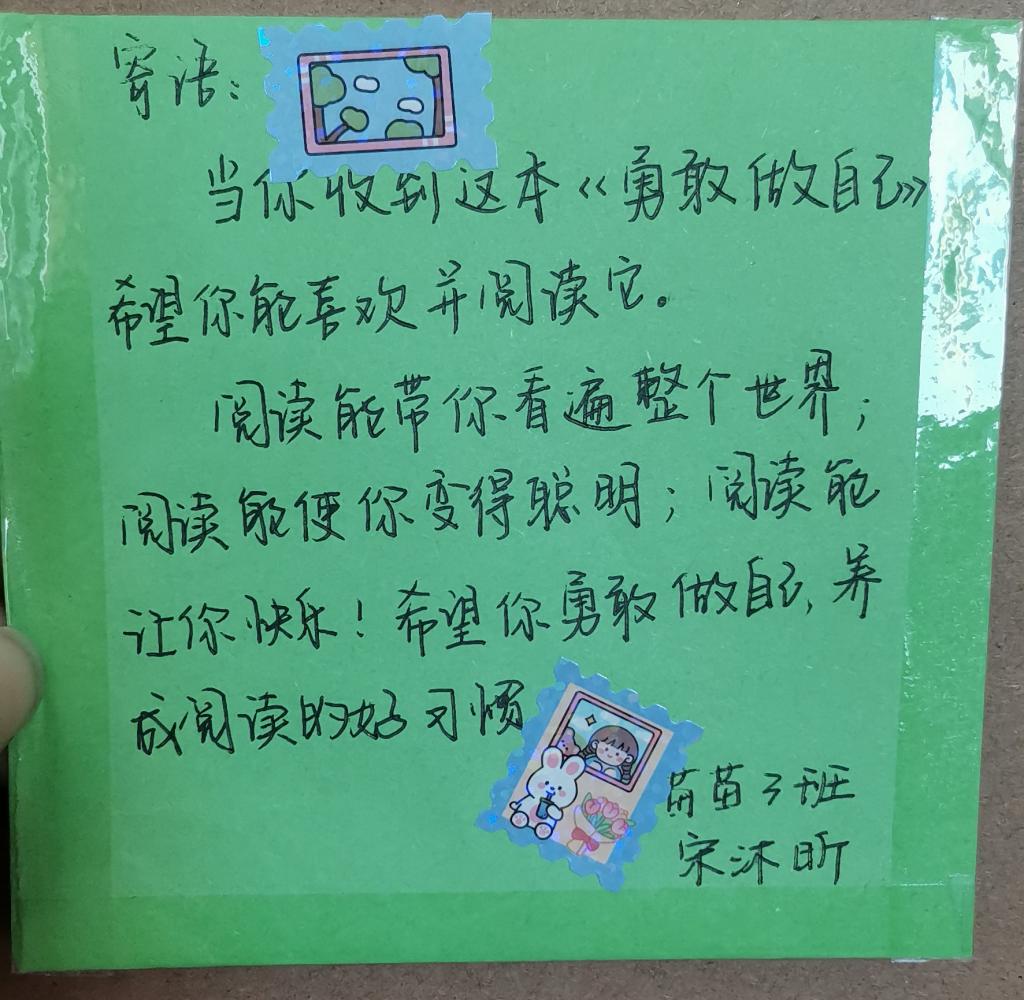 寄语：
当你收到这本《勇敢做自己》
希望你能喜欢并阅读它。
阅读能带你看遍整个世界；
阅读能使你变得聪明；阅读能
让你快乐！希望你勇敢做自己，养
成阅读的好习惯
苗苗3班
宋沐昕